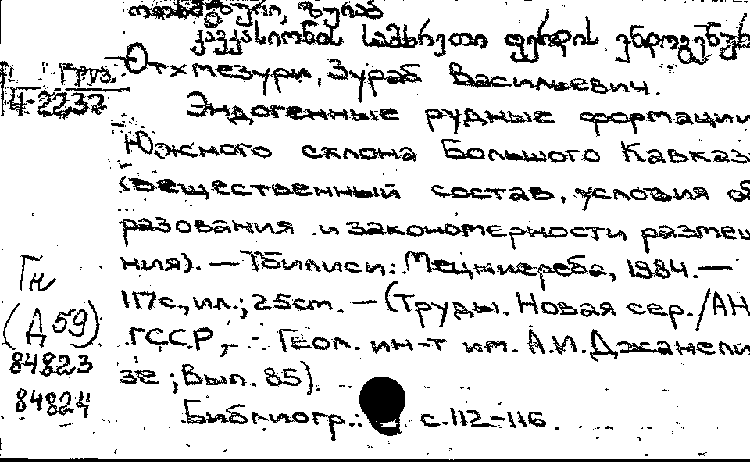 ოთხმეზური, ზურაბ
კავკასიონის სამხრეთი ფერდის ენდოგენურ
Груз.
4-2232
Отхмезури, Зураб Васильевич.
Эндогенные рудные формации
Южного склона Большого Кавказ
(вещественный состав, условия об
разования и закономерности размещ
ния). — Тбилиси: Мецниереба, 1984. —
117с., ил.; 25cm. — (Труды. Новая сер./АН
ГССР, Геол. ин-т им. А.И. Джанели
зе; Вып. 85).
Библиогр.: с. 112-116.
Гн
(Д59)
84823
84824